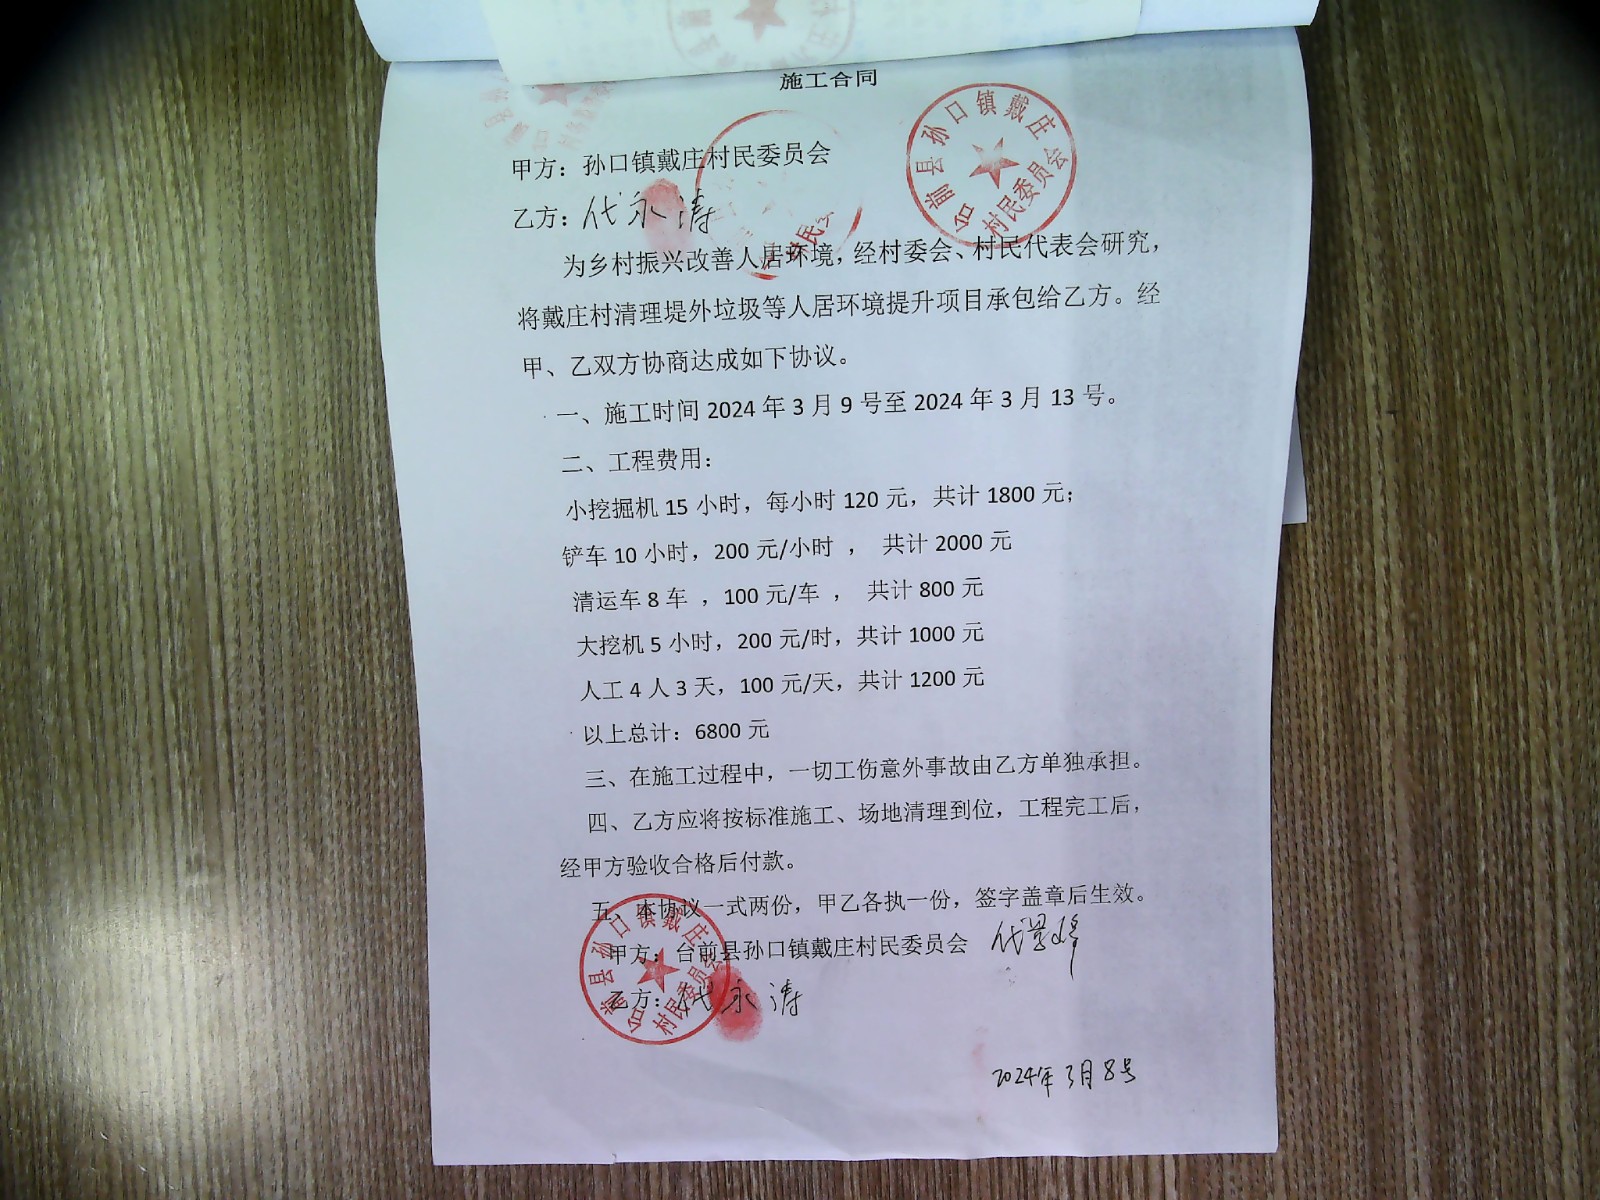 施工合同
甲方：孙口镇戴庄村民委员会
乙方：代永涛
台前县孙口镇戴庄
村民委员会
村民委
为乡村振兴改善人居环境，经村委会、村民代表会研究，
将戴庄村清理堤外垃圾等人居环境提升项目承包给乙方。经
甲、乙双方协商达成如下协议。
一、施工时间 2024 年 3 月 9 号至 2024 年 3 月 13 号。
二、工程费用：
小挖掘机 15 小时，每小时 120 元，共计 1800 元；
铲车 10 小时，200 元/小时 ， 共计 2000 元
清运车 8 车 ，100 元/车 ， 共计 800 元
大挖机 5 小时，200 元/时，共计 1000 元
人工 4 人 3 天，100 元/天，共计 1200 元
以上总计：6800 元
三、在施工过程中，一切工伤意外事故由乙方单独承担。
四、乙方应将按标准施工、场地清理到位，工程完工后，
经甲方验收合格后付款。
五、本协议一式两份，甲乙各执一份，签字盖章后生效。
甲方：台前县孙口镇戴庄村民委员会
乙方：代永涛
台前县孙口镇戴庄
村民委员会
2024年3月8号